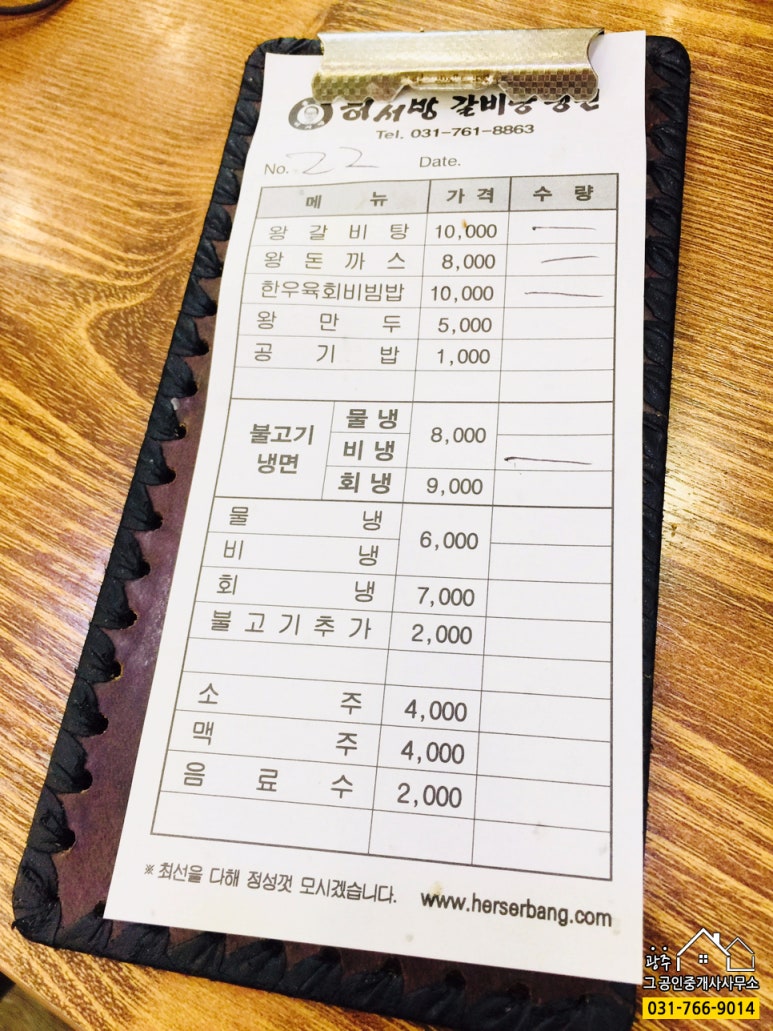 허서방 갈비탕
Tel. 031-761-8863
No. 22 Date.
메 뉴 가 격 수 량
왕 갈 비 탕 10,000
왕 돈 까 스 8,000
한우육회비빔밥 10,000
왕 만 두 5,000
공 기 밥 1,000
불고기 냉면 물 냉 8,000
비 냉
회 냉 9,000
물 냉 6,000
비 냉
회 냉 7,000
불 고 기 추 가 2,000
소 주 4,000
맥 주 4,000
음 료 수 2,000
※ 최선을 다해 정성껏 모시겠습니다. www.herserbang.com
광주
그공인중개사사무소
031-766-9014